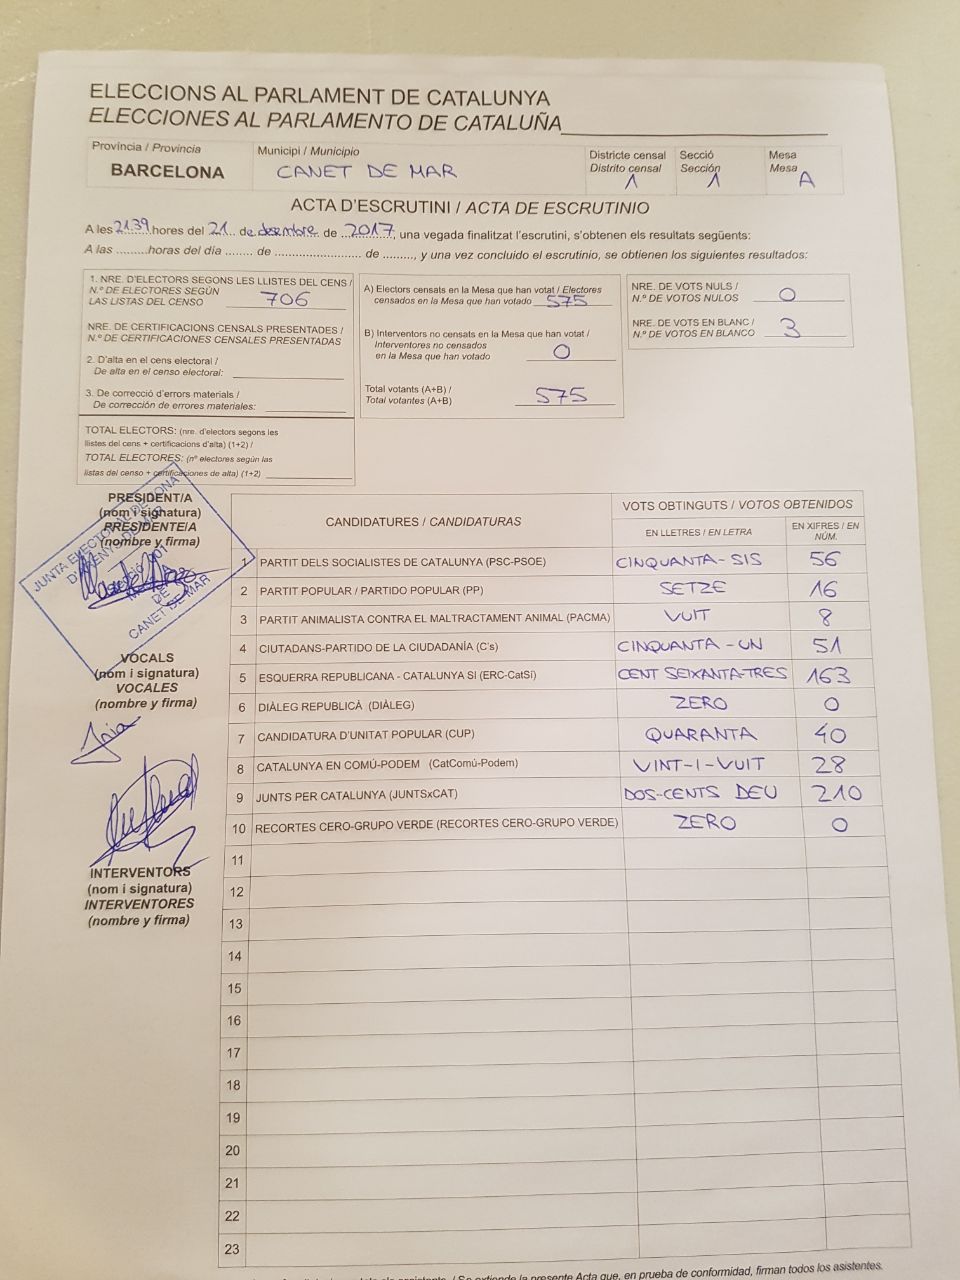 ELECCIONS AL PARLAMENT DE CATALUNYA
ELECCIONES AL PARLAMENTO DE CATALUÑA
Província / Provincia
BARCELONA
Municipi / Municipio
CANET DE MAR
Districte censal
Distrito censal
1
Secció
Sección
1
Mesa
Mesa
A
ACTA D'ESCRUTINI / ACTA DE ESCRUTINIO
A les 2139 hores del 21 de desembre de 2017, una vegada finalitzat l'escrutini, s'obtenen els resultats següents:
A las .........horas del día ........ de .......................... de ........, y una vez concluido el escrutinio, se obtienen los siguientes resultados:
1. NRE. D'ELECTORS SEGONS LES LLISTES DEL CENS /
N.º DE ELECTORES SEGÚN
LAS LISTAS DEL CENSO 706
NRE. DE CERTIFICACIONS CENSALS PRESENTADES /
N.º DE CERTIFICACIONES CENSALES PRESENTADAS
2. D'alta en el cens electoral /
De alta en el censo electoral:
3. De correcció d'errors materials /
De corrección de errores materiales:
TOTAL ELECTORS: (nre. d'electors segons les
llistes del cens + certificacions d'alta) (1+2) /
TOTAL ELECTORES: (nº electores según las
listas del censo + certificaciones de alta) (1+2)
A) Electors censats en la Mesa que han votat / Electores
censados en la Mesa que han votado 575
B) Interventors no censats en la Mesa que han votat /
Interventores no censados
en la Mesa que han votado 0
Total votants (A+B) /
Total votantes (A+B) 575
NRE. DE VOTS NULS /
N.º DE VOTOS NULOS 0
NRE. DE VOTS EN BLANC /
N.º DE VOTOS EN BLANCO 3
PRESIDENT/A
(nom i signatura)
PRESIDENTE/A
(nombre y firma)
JUNTA ELECTORAL DE ZONA
D'ARENYS DE MAR
CANET DE MAR
VOCALS
(nom i signatura)
VOCALES
(nombre y firma)
INTERVENTORS
(nom i signatura)
INTERVENTORES
(nombre y firma)
CANDIDATURES / CANDIDATURAS
VOTS OBTINGUTS / VOTOS OBTENIDOS
EN LLETRES / EN LETRA
EN XIFRES / EN
NÚM.
1 PARTIT DELS SOCIALISTES DE CATALUNYA (PSC-PSOE) CINQUANTA-SIS 56
2 PARTIT POPULAR / PARTIDO POPULAR (PP) SETZE 16
3 PARTIT ANIMALISTA CONTRA EL MALTRACTAMENT ANIMAL (PACMA) VUIT 8
4 CIUTADANS-PARTIDO DE LA CIUDADANÍA (C's) CINQUANTA-UN 51
5 ESQUERRA REPUBLICANA - CATALUNYA SI (ERC-CatSí) CENT SEIXANTA-TRES 163
6 DIÀLEG REPUBLICÀ (DIÀLEG) ZERO 0
7 CANDIDATURA D'UNITAT POPULAR (CUP) QUARANTA 40
8 CATALUNYA EN COMÚ-PODEM (CatComú-Podem) VINT-I-VUIT 28
9 JUNTS PER CATALUNYA (JUNTSxCAT) DOS-CENTS DEU 210
10 RECORTES CERO-GRUPO VERDE (RECORTES CERO-GRUPO VERDE) ZERO 0
11
12
13
14
15
16
17
18
19
20
21
22
23
/ Se extiende la presente Acta que, en prueba de conformidad, firman todos los asistentes.